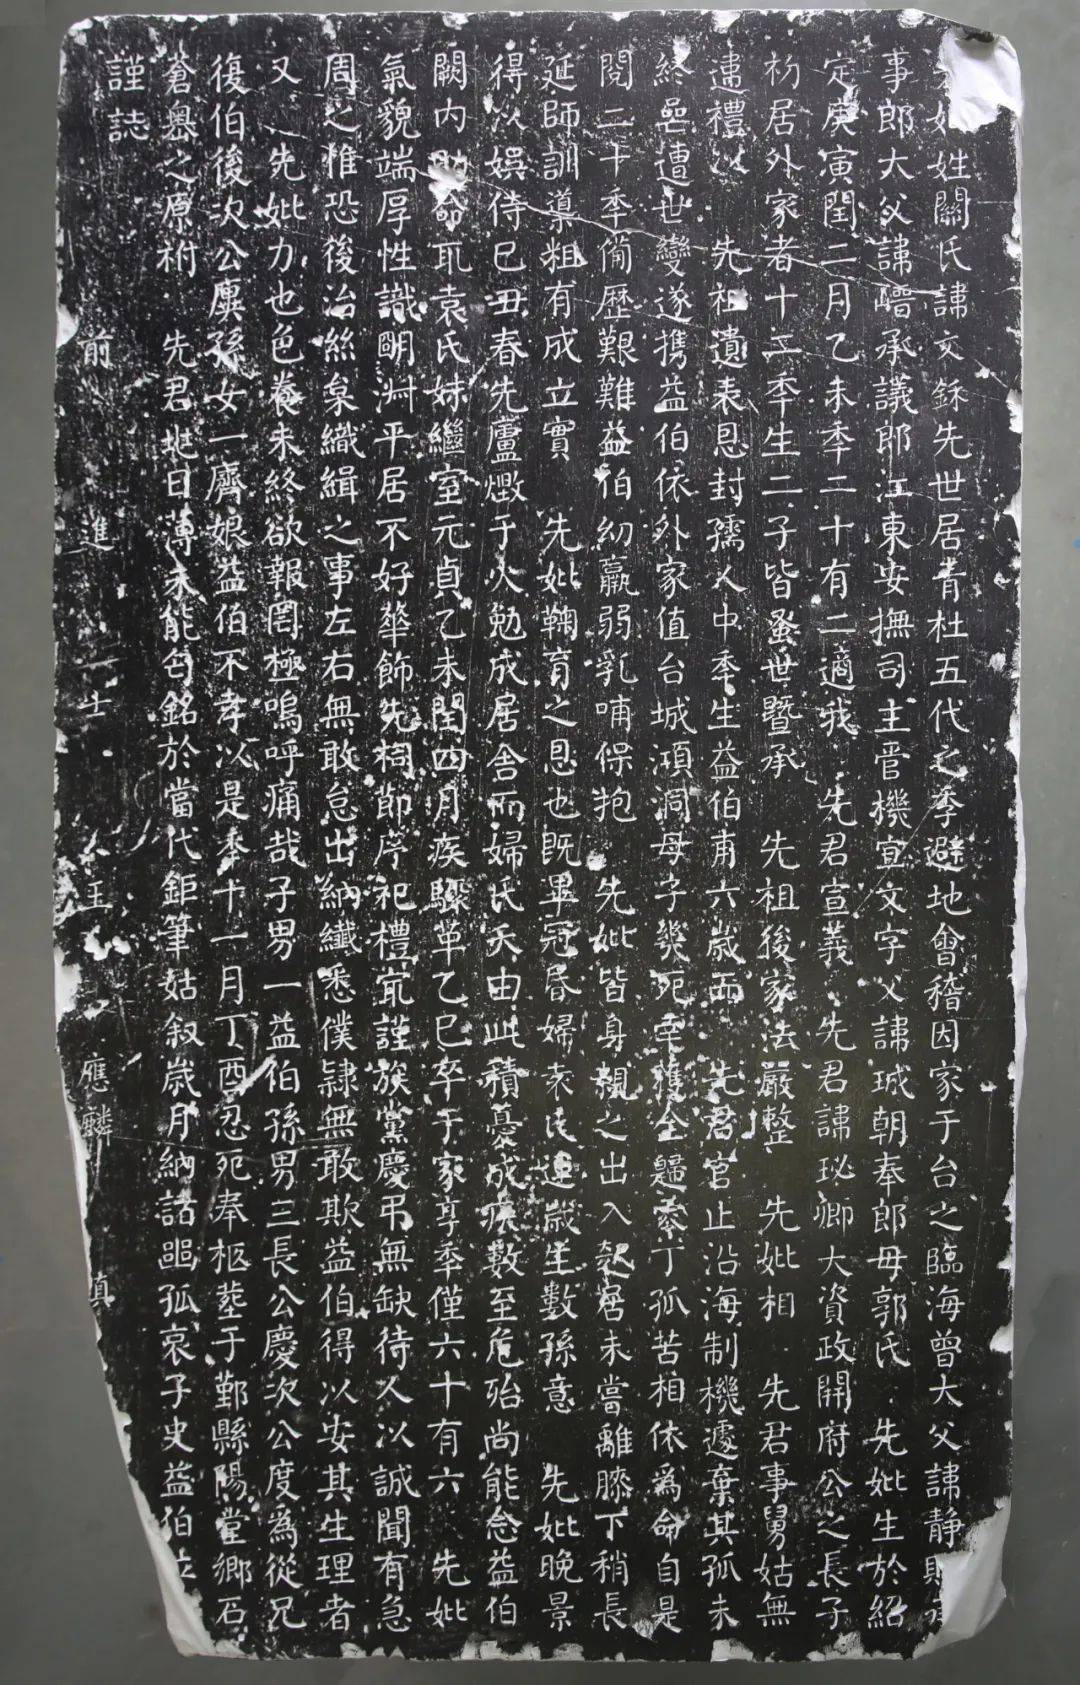 妣姓關氏諱文穌先世居青杜五代之季避地會稽因家于台之臨海曾大父諱静
事郎大父諱𪾢承議郎江東安撫司主管機宜文字父諱珹朝奉郎母郭氏先妣生於紹
定庚寅閏二月乙未季二十有二適我先君宣義先君諱玜卿大資政開府公之長子
初居外家者十二季生二子皆蚤世暨承先祖後家法嚴整先妣相先君事舅姑無
違禮以先祖遺表恩封孺人中季生益伯甫六歲而先君官止沿海制機遽棄其孤未
終喪遭世變遂携益伯依外家值台城澒洞母子幾死幸獲全歸零丁孤苦相依爲命自是
閱二十季備歷艱難益伯幼羸弱乳哺保抱先妣皆身親之出入起居未嘗離膝下稍長
延師訓導粗有成立實先妣鞠育之恩也既畢冠昏婦袁氏連歲生數孫意先妣晚景
得以娛侍己丑春先廬燬于火勉成居舍而婦氏夭由此積憂成疾數至危殆尚能念益伯
闕內助命取袁氏妹繼室元貞乙未閏四月疾驟革乙巳卒于家享季僅六十有六先妣
氣貌端厚性識明淑平居不好華飾先祠節序祀禮寅謹族黨慶弔無缺待人以誠聞有急
周之惟恐後治絲枲織緝之事左右無敢怠出納纖悉僕隸無敢欺益伯得以安其生理者
又先妣力也色養未終欲報罔極嗚呼痛哉子男一益伯孫男三長公慶次公度為從兄
復伯後次公廙孫女一齊娘益伯不孝以是季十一月丁酉忍死奉柩塟于鄞縣陽堂鄉石
蒼奧之原祔先君地日薄未能匄銘於當代鉅筆姑叙歲月納諸幽孤哀子史益伯泣
謹誌
前進士王應麟填